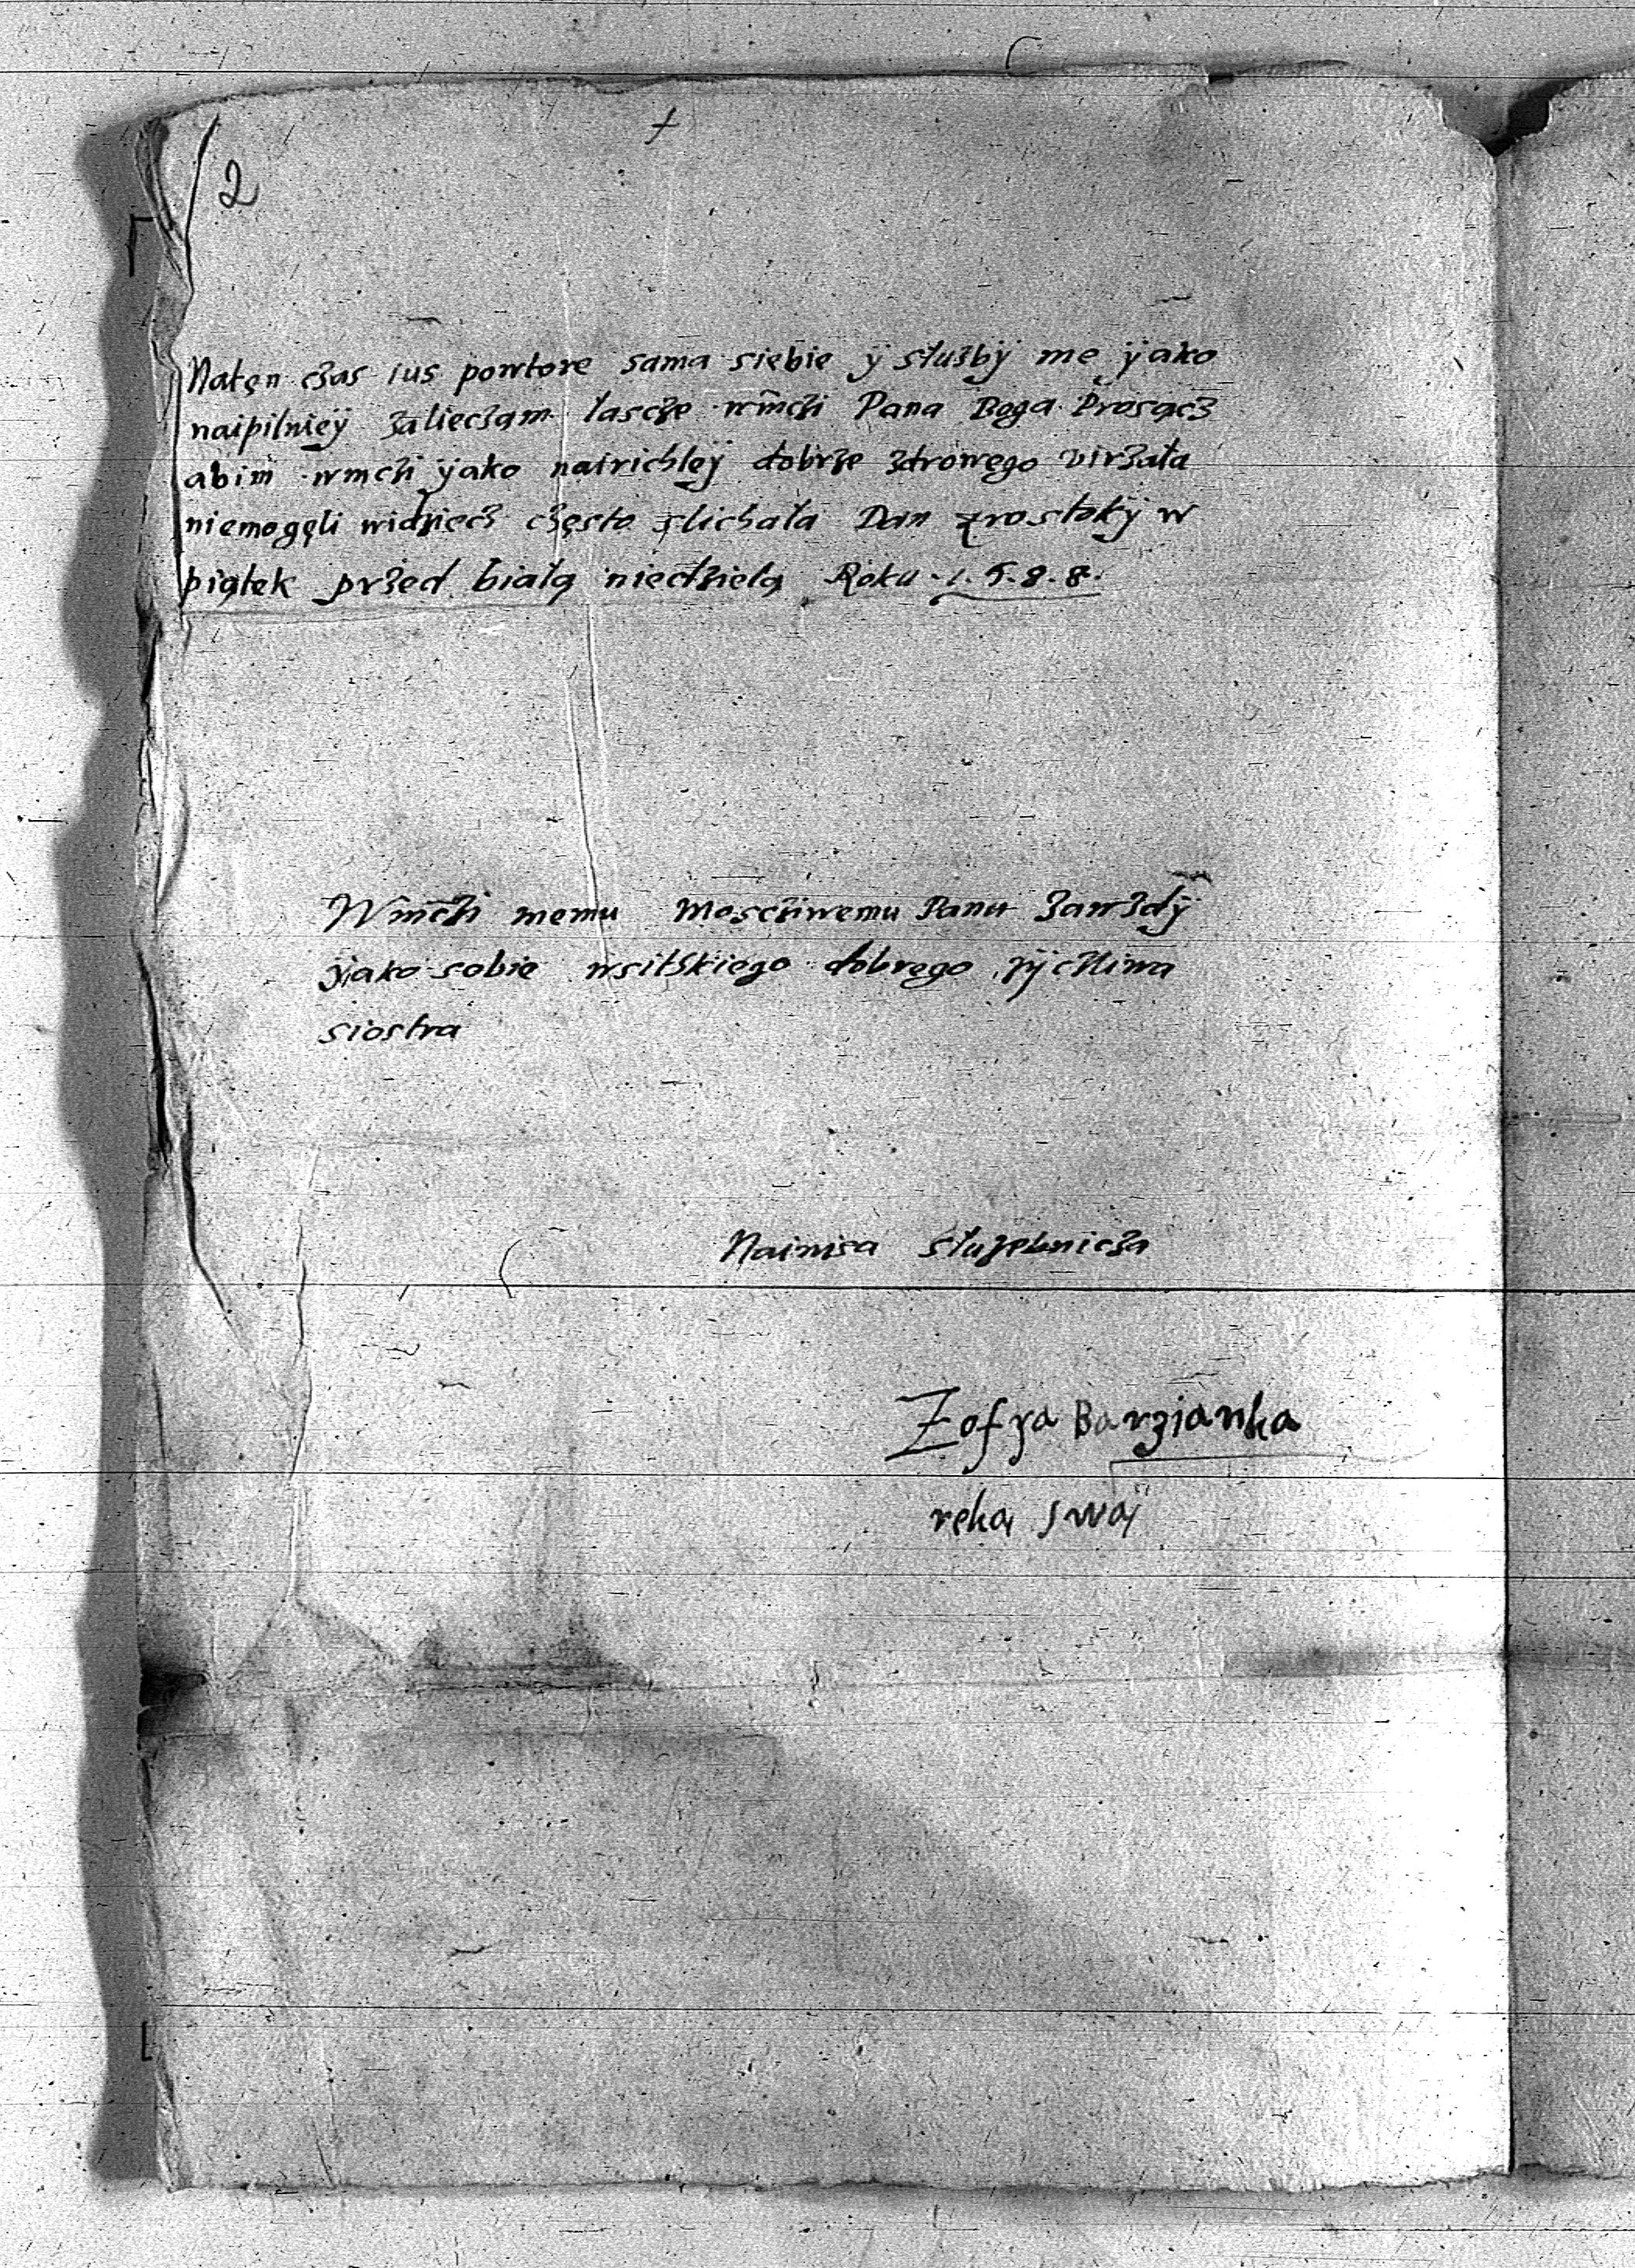 2
Natęn czas ius powtore sama siebie ÿ słuzbÿ me ÿako
naipilnieÿ zalieczam łascze wm̃czi Pana Boga Prosącz
abim wmczi ÿako nairichleÿ dobrze zdrowego virzała
niemogęli widziecz często slichała Dan zrostokÿ w
piątek przed białą niedzielą Roku 1.5.8.8.
Wm̃czi memu Moscziwemu Panu zawzdÿ
ÿako sobie wsitskiego dobrego zÿczliwa
siostra
Nainisa słuzebnicza
Zofza Barzianka
ręką swą